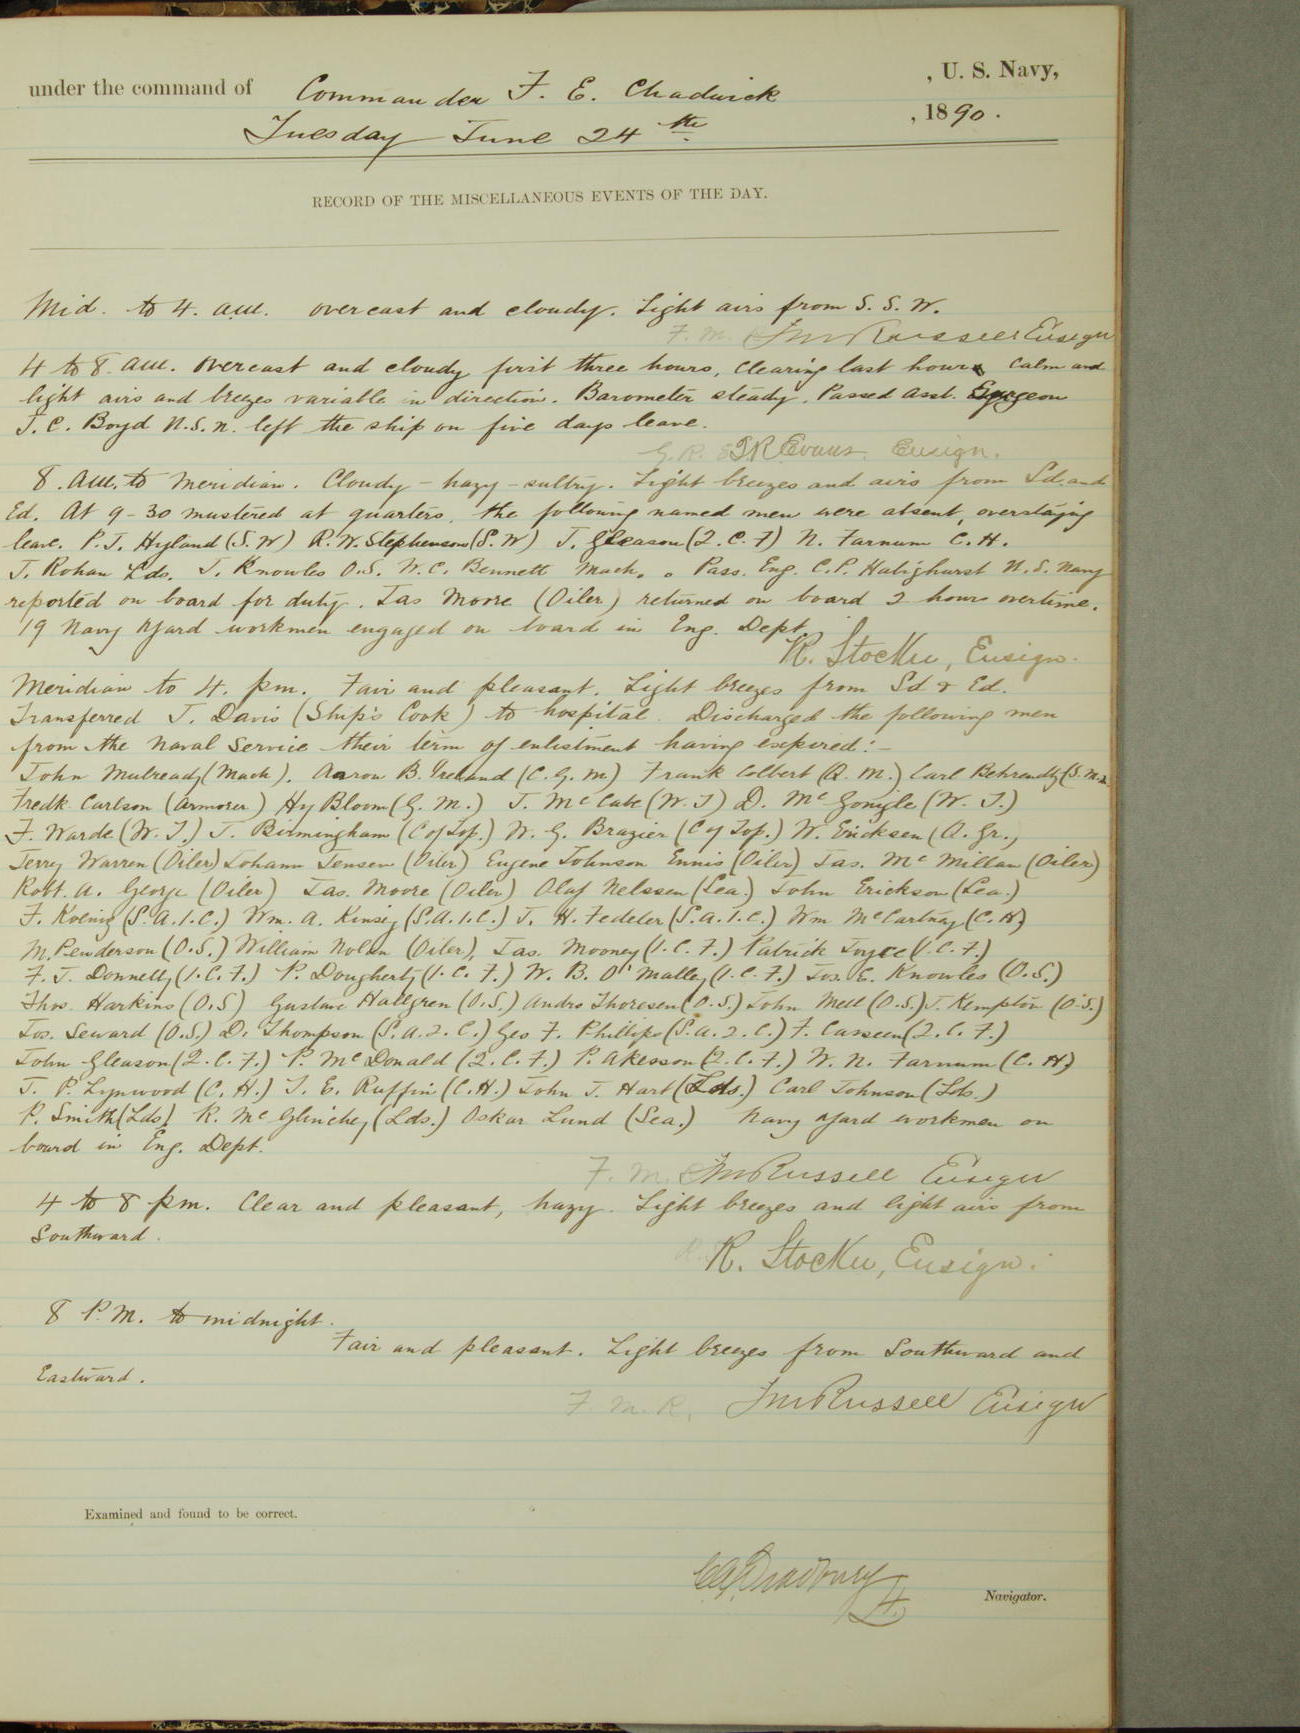 under the command of Commander F. E. Chadwick , U. S. Navy,
Tuesday June 24th , 1890.
RECORD OF THE MISCELLANEOUS EVENTS OF THE DAY.
Mid. to 4. a.m. overcast and cloudy. Light airs from S. S. W.
F. M. Russell Ensign
4 to 8. a.m. Overcast and cloudy first three hours, clearing last hour. Calm and
light airs and breezes variable in direction. Barometer steady. Passed Asst. Surgeon
J. C. Boyd U.S.N. left the ship on five days leave.
G. R. Evans. Ensign.
8. a.m. to Meridian. Cloudy - hazy - sultry. Light breezes and airs from Sd. and
Ed. At 9-30 mustered at quarters, the following named men were absent, overstaying
leave. P. J. Hyland (S.W) R. W. Stephenson (S.W) J. Gleason (2.C.F) N. Farnum C.H.
J. Rohan Lds. J. Knowles O.S. W. C. Bennett Mach. Pass. Eng. C. P. U.S. Navy
reported on board for duty. Jas Moore (Oiler) returned on board 2 hours overtime.
19 Navy Yard workmen engaged on board in Eng. Dept.
R. Stocker, Ensign.
Meridian to 4. p.m. Fair and pleasant. Light breezes from Sd & Ed.
Transferred J. Davis (Ship's Cook) to hospital. Discharged the following men
from the Naval Service their term of enlistment having expired:-
John Mulready (Mach), Aaron B. Ireland (C.G.M) Frank Colbert (Q.M.) Carl Behrendt
Fredk. Carlson (Armorer) Hy Bloom (G.M.) J. McCabe (W.T) D. McGonigle (W.T.)
F. Warde (W.T.) J. Birmingham (C of Top.) W. G. Brazier (C of Top.) W. Ericksen (A. Gr.)
Jerry Warren (Oiler) Johann Jensen (Oiler) Eugene Johnson Ennis (Oiler) Jas. McMillan (Oiler)
Robt. A. George (Oiler) Jas. Moore (Oiler) Olaf Nelssen (Sea.) John Erickson (Sea.)
F. Koenig (S.A.1.C.) Wm. A. Kinsey (S.A.1.C.) J. H. Fedeler (S.A.1.C.) Wm McCartney (C.H)
M. Penderson (O.S.) William Nolan (Oiler), Jas. Mooney (1.C.F.) Patrick Joyce (1.C.F.)
F. J. Donnelly (1.C.F.) P. Dougherty (1.C.F.) W. B. O'Malley (1.C.F.) Jos. E. Knowles (O.S.)
Thos. Harkins (O.S) Gustave Hallgren (O.S.) Andrs Thoresen (O.S.) John Mell (O.S.) J. Kempton (O.S.)
Jos. Seward (O.S.) D. Thompson (S.A.2.C.) Geo F. Phillips (S.A.2.C.) F. Casseen (2.C.F.)
John Gleason (2.C.F.) P. McDonald (2.C.F.) P. Akesson (2.C.F.) W. N. Farnum (C.H)
J. P. Lynwood (C.H.) J. E. Ruffin (C.H.) John J. Hart (Lds.) Carl Johnson (Lds.)
P. Smith (Lds) R. McGlinchey (Lds.) Oskar Lund (Sea.) Navy Yard workmen on
board in Eng. Dept.
F. M. Russell Ensign
4 to 8 p.m. Clear and pleasant, hazy. Light breezes and light airs from
Southward.
R. Stocker, Ensign.
8 P.M. to midnight.
Fair and pleasant. Light breezes from Southward and
Eastward.
F. M. R. Russell Ensign
Examined and found to be correct.
Bradbury
Lt.
Navigator.